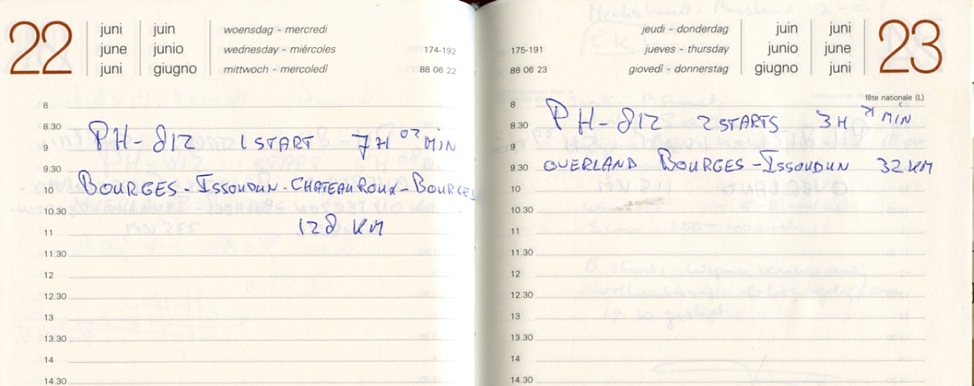 22
juni juin woensdag - mercredi
june junio wednesday - miércoles 174-192
juni giugno mittwoch - mercoledî 88 06 22
8
8.30 PH-812 1 START 7H 02 MIN
9
9.30
10 BOURGES - ISSOUDUN - CHATEAUROUX - BOURGES
10.30
11 128 KM
11.30
12
12.30
13
13.30
14
14.30
jeudi - donderdag juin juni
175-191 jueves - thursday junio june
88 06 23 giovedî - donnerstag giugno juni
23
fête nationale (L)
8
8.30 PH-812 2 STARTS 3H MIN
9
9.30 OVERLAND BOURGES - ISSOUDUN 32 KM
10
10.30
11
11.30
12
12.30
13
13.30
14
14.30